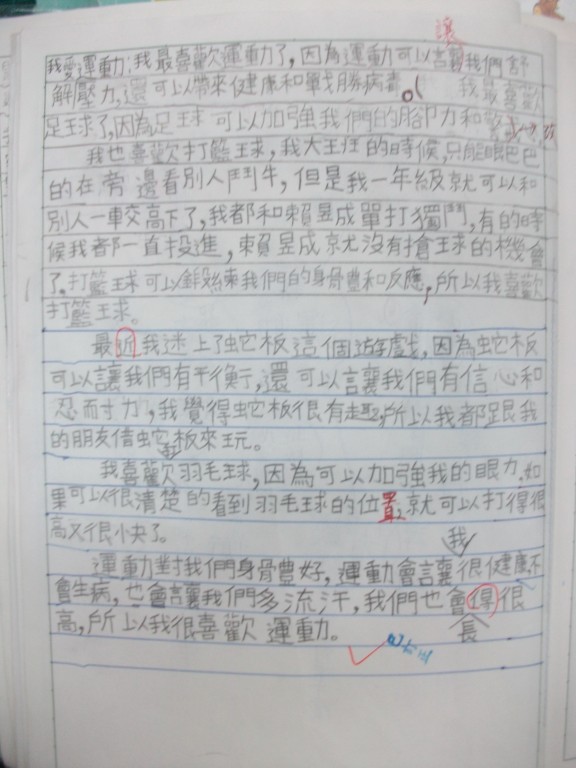 讓
我愛運動:我最喜歡運動了,因為運動可以讓我們舒
解壓力,還可以帶來健康和戰勝病毒。( 我最喜歡
足球了,因為足球可以加強我們的腳力和
我也喜歡打籃球,我大班的時候,只能眼巴巴
的在旁邊看別人鬥牛,但是我一年級就可以和
別人一較高下了,我都和賴昱成單打獨鬥,有的時
候我都一直投進,賴昱成就沒有搶球的機會
了。打籃球可以鍛鍊我們的身體和反應,所以我喜歡
打籃球。
最近我迷上了蛇板這個遊戲,因為蛇板
可以讓我們有平衡,還可以讓我們有信心和
忍耐力,我覺得蛇板很有趣,所以我都跟我
的朋友借蛇板來玩。
我喜歡羽毛球,因為可以加強我的眼力,如
果可以很清楚的看到羽毛球的位置,就可以打得很
高又很快了。
我
運動對我們身體好,運動會讓很健康不
會生病,也會讓我們多流汗,我們也會得很
高,所以我很喜歡運動。
長